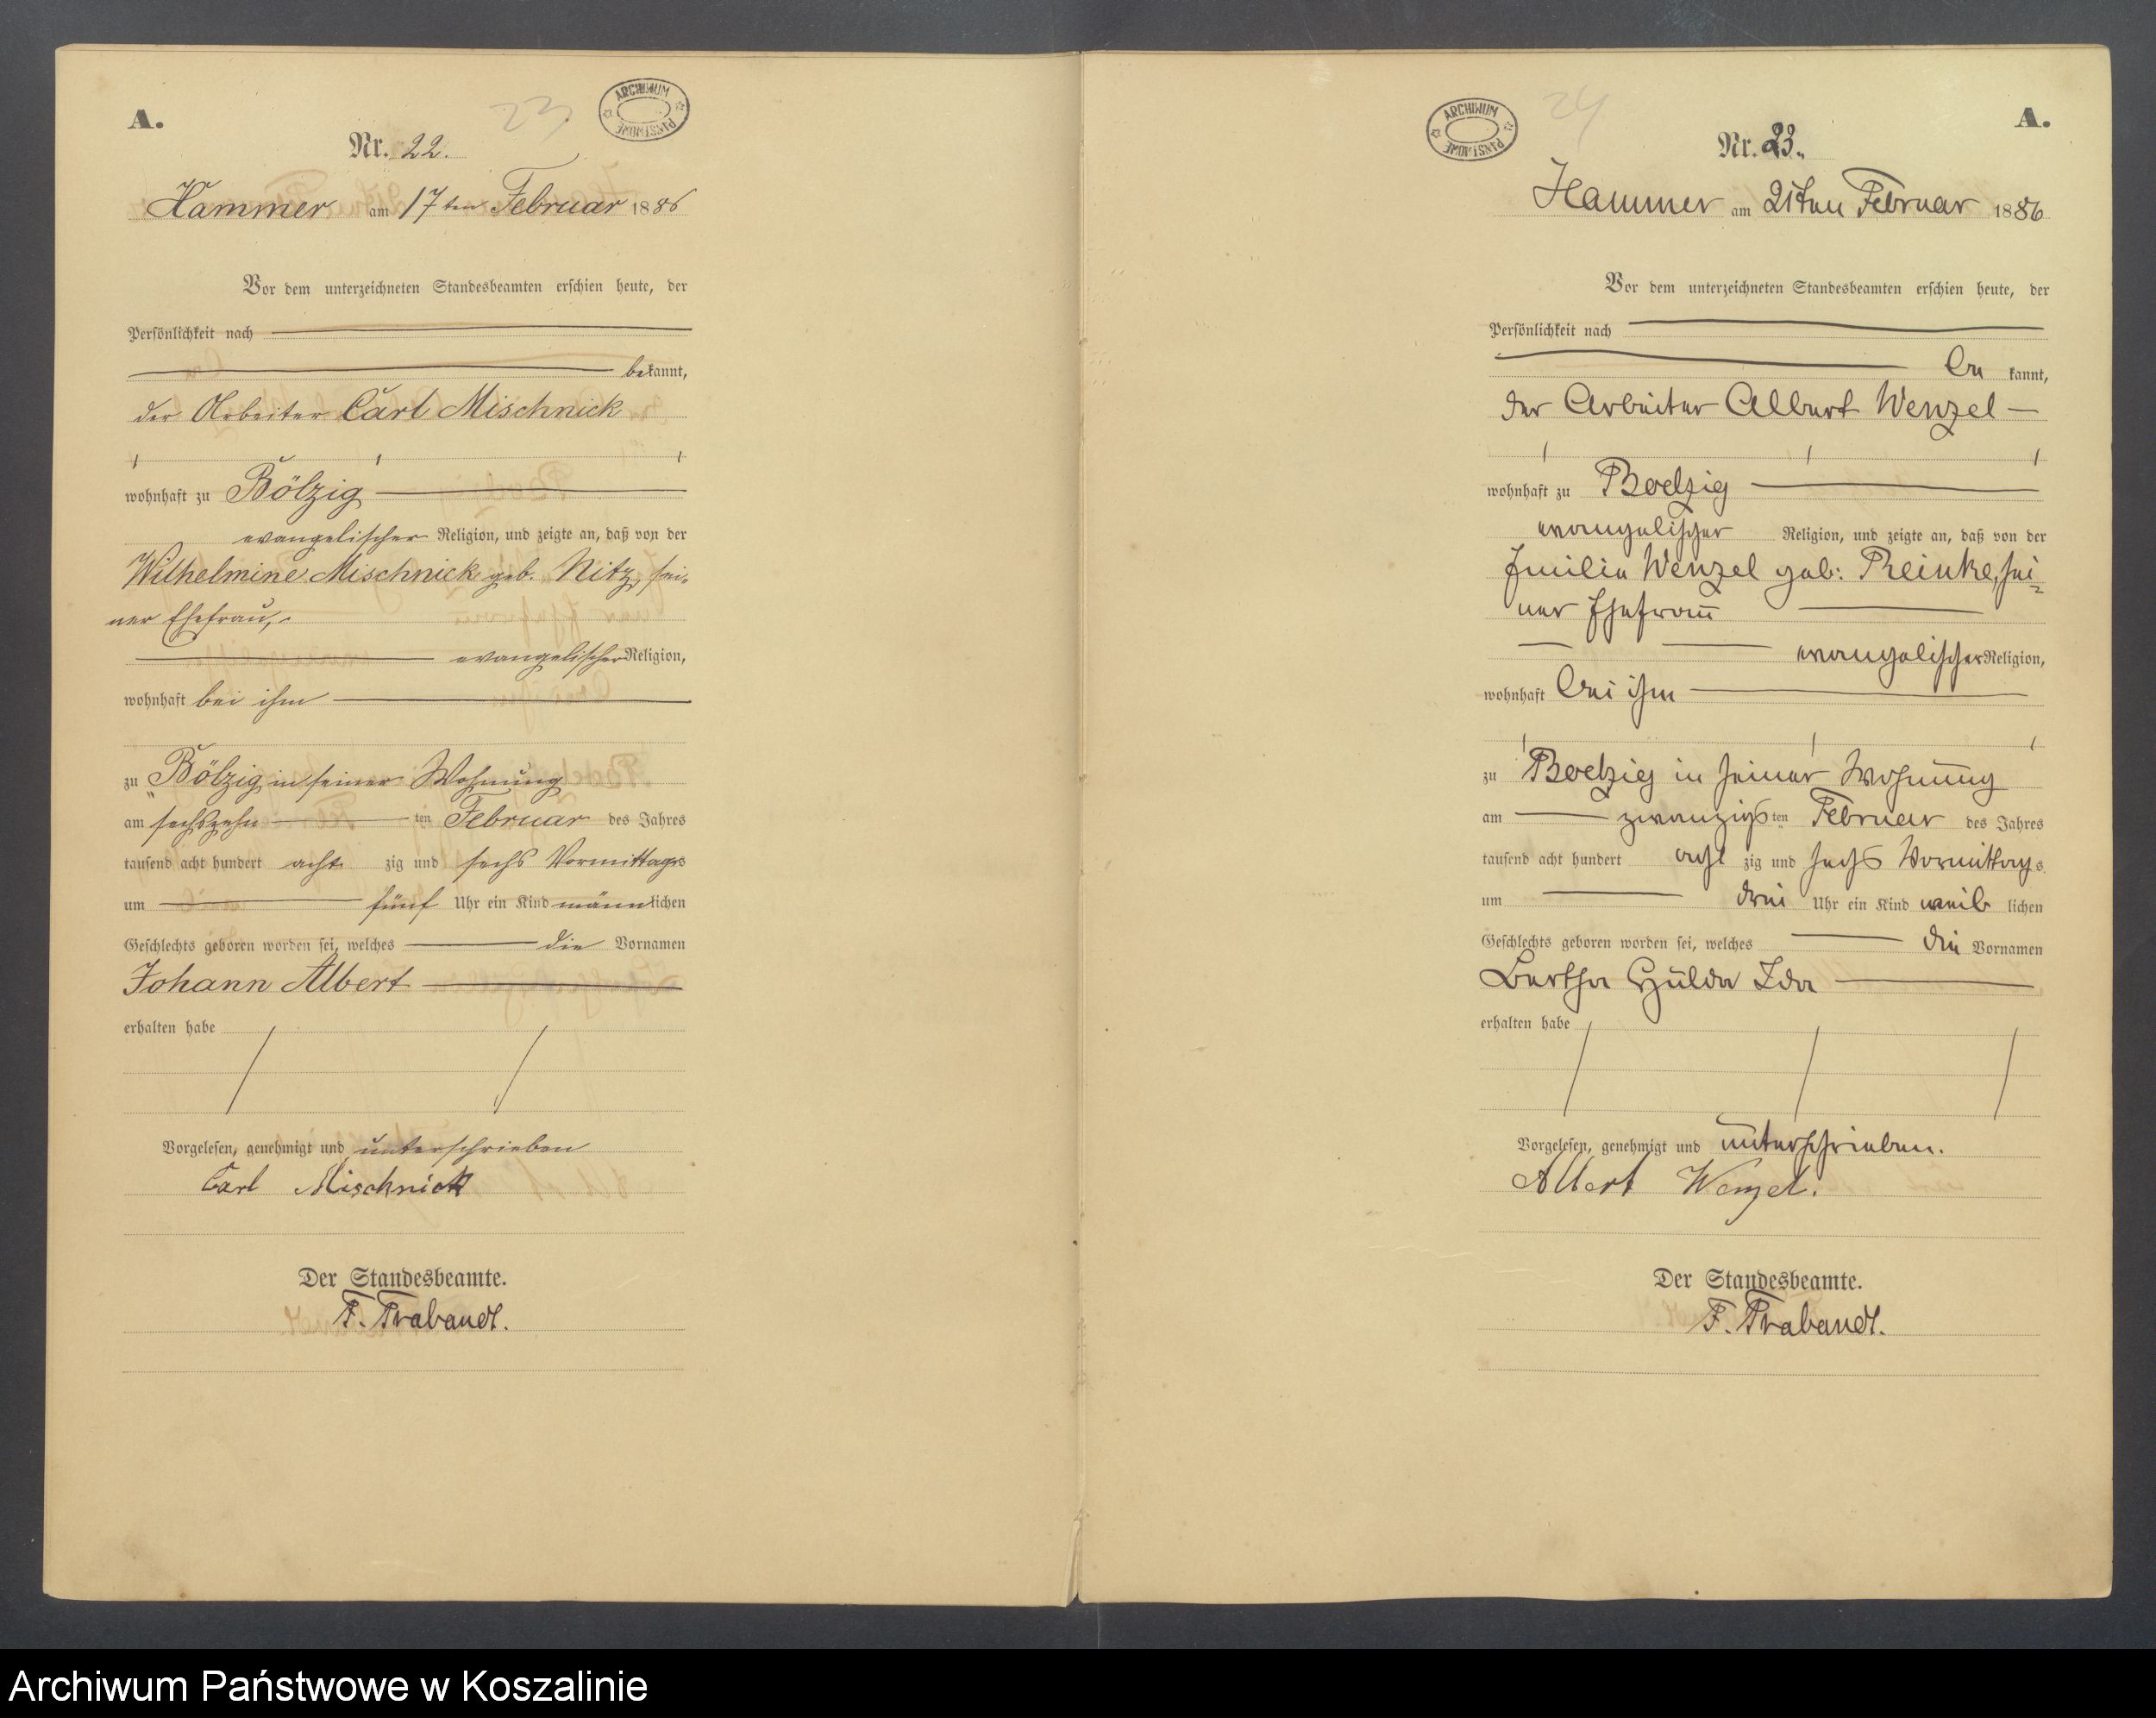 A.
23
ARCHIWUM PAŃSTWOWE
Nr. 22.
Hammer am 17ten Februar 1886
Vor dem unterzeichneten Standesbeamten erschien heute, der
Persönlichkeit nach
bekannt,
der Arbeiter Carl Mischnick
wohnhaft zu Bölzig
evangelischer Religion, und zeigte an, daß von der
Wilhelmine Mischnick geb. Nitz, sei-
ner Ehefrau,
evangelischer Religion,
wohnhaft bei ihm
zu Bölzig in seiner Wohnung
am sechszehn ten Februar des Jahres
tausend acht hundert acht zig und sechs Vormittags
um fünf Uhr ein Kind männlichen
Geschlechts geboren worden sei, welches die Vornamen
Johann Albert
erhalten habe
Vorgelesen, genehmigt und unterschrieben
Carl Mischnick
Der Standesbeamte.
F. Trabandt.
ARCHIWUM PAŃSTWOWE
24
A.
Nr. 23.
Hammer am 21ten Februar 1886
Vor dem unterzeichneten Standesbeamten erschien heute, der
Persönlichkeit nach
be kannt,
der Arbeiter Albert Wenzel
wohnhaft zu Boelzig
evangelischer Religion, und zeigte an, daß von der
Emilie Wenzel geb: Reinke, sei-
ner Ehefrau
evangelischer Religion,
wohnhaft bei ihm
zu Boelzig in seiner Wohnung
am zwanzigs ten Februar des Jahres
tausend acht hundert acht zig und sechs Vormittags
um drei Uhr ein Kind weib lichen
Geschlechts geboren worden sei, welches die Vornamen
Bertha Hulda Ida
erhalten habe
Vorgelesen, genehmigt und unterschrieben.
Albert Wenzel.
Der Standesbeamte.
F. Trabandt.
Archiwum Państwowe w Koszalinie